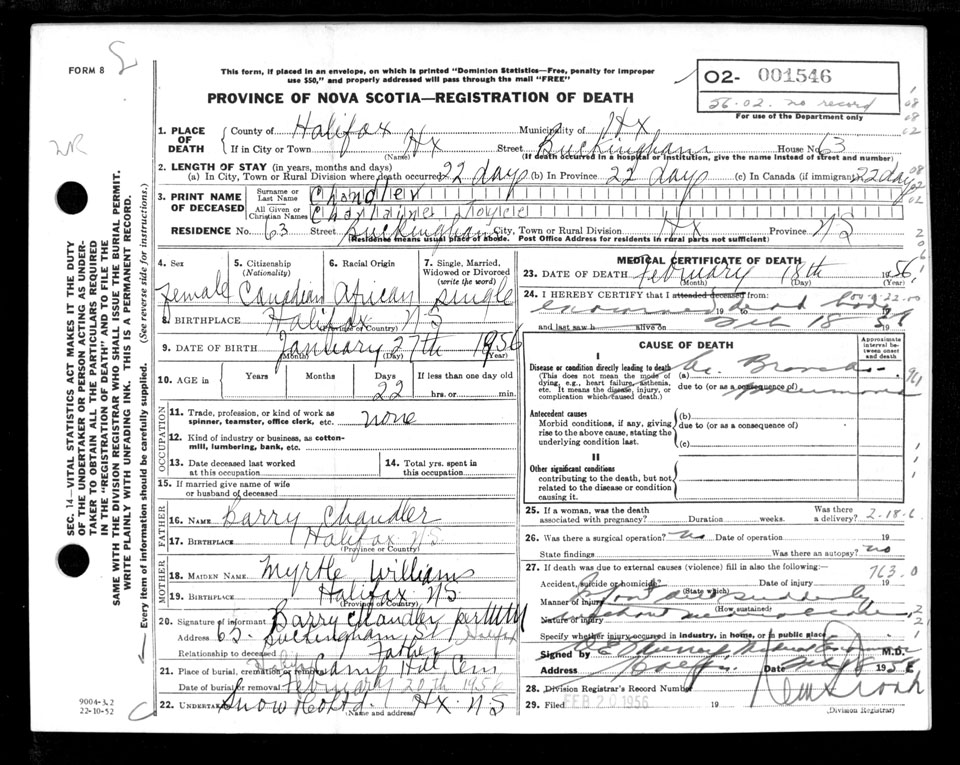 FORM 8
This form, if placed in an envelope, on which is printed "Dominion Statistics—Free, penalty for improper
use $50," and properly addressed will pass through the mail "FREE"
PROVINCE OF NOVA SCOTIA—REGISTRATION OF DEATH
02- 001546
56-02. no record
For use of the Department only
1. PLACE OF DEATH County of Halifax Municipality of Hx
If in City or Town Hx Street Buckingham House No. 63
(Name) (If death occurred in a hospital or institution, give the name instead of street and number)
2. LENGTH OF STAY (in years, months and days)
(a) In City, Town or Rural Division where death occurred 22 days (b) In Province 22 days (c) In Canada (if immigrant) 22 days
3. PRINT NAME OF DECEASED
Surname or Last Name Chandler
All Given or Christian Names Joyce
RESIDENCE No. 63 Street Buckingham City, Town or Rural Division Hx Province NS
(Residence means usual place of abode. Post Office Address for residents in rural parts not sufficient)
4. Sex 5. Citizenship (Nationality) 6. Racial Origin 7. Single, Married, Widowed or Divorced (write the word)
Female Canadian African single
8. BIRTHPLACE Halifax NS
(Province or Country)
9. DATE OF BIRTH January 27th 1956
(Month) (Day) (Year)
10. AGE in Years Months Days If less than one day old
22 hrs. or min.
OCCUPATION
11. Trade, profession, or kind of work as spinner, teamster, office clerk, etc. none
12. Kind of industry or business, as cotton-mill, lumbering, bank, etc.
13. Date deceased last worked at this occupation
14. Total yrs. spent in this occupation
15. If married give name of wife or husband of deceased
FATHER
16. NAME Barry Chandler
17. BIRTHPLACE Halifax NS
(Province or Country)
MOTHER
18. MAIDEN NAME Myrtle Williams
19. BIRTHPLACE Halifax NS
(Province or Country)
20. Signature of informant Barry Chandler per
Address 63 Buckingham St Halifax
Relationship to deceased Father
21. Place of burial, cremation or removal Camp Hill Cem
Date of burial or removal February 20th 1956
22. Undertaker Snow & Co Ltd. Hx NS
(Name and address)
MEDICAL CERTIFICATE OF DEATH
23. DATE OF DEATH February 18th 1956
(Month) (Day) (Year)
24. I HEREBY CERTIFY that I attended deceased from:
examined dead body
19 to
and last saw h alive on Feb 18 56
CAUSE OF DEATH
Approximate interval between onset and death
I
Disease or condition directly leading to death
(This does not mean the mode of dying, e.g., heart failure, asthenia, etc. It means the disease, injury, or complication which caused death.)
(a) Broncho-
due to (or as a consequence of) pneumonia
Antecedent causes
Morbid conditions, if any, giving rise to the above cause, stating the underlying condition last.
(b)
due to (or as a consequence of)
(c)
II
Other significant conditions
contributing to the death, but not related to the disease or condition causing it.
25. If a woman, was the death associated with pregnancy? Duration weeks. Was there a delivery? 2-18-6
26. Was there a surgical operation? No Date of operation 19
State findings Was there an autopsy? no
27. If death was due to external causes (violence) fill in also the following: 763.0
Accident, suicide or homicide? Date of injury 19
(State which)
Manner of injury suddenly
(How sustained)
Nature of injury
Specify whether injury occurred in industry, in home, or in public place
Signed by M.D.
Address Date 1956
28. Division Registrar's Record Number
29. Filed FEB 20 1956 19
(Division Registrar)
9004-3.2
22-10-52
SEC. 14—VITAL STATISTICS ACT MAKES IT THE DUTY
OF THE UNDERTAKER OR PERSON ACTING AS UNDER-
TAKER TO OBTAIN ALL THE PARTICULARS REQUIRED
IN THE "REGISTRATION OF DEATH" AND TO FILE THE
SAME WITH THE DIVISION REGISTRAR WHO SHALL ISSUE THE BURIAL PERMIT.
WRITE PLAINLY WITH UNFADING INK. THIS IS A PERMANENT RECORD.
Every item of information should be carefully supplied. (See reverse side for instructions.)